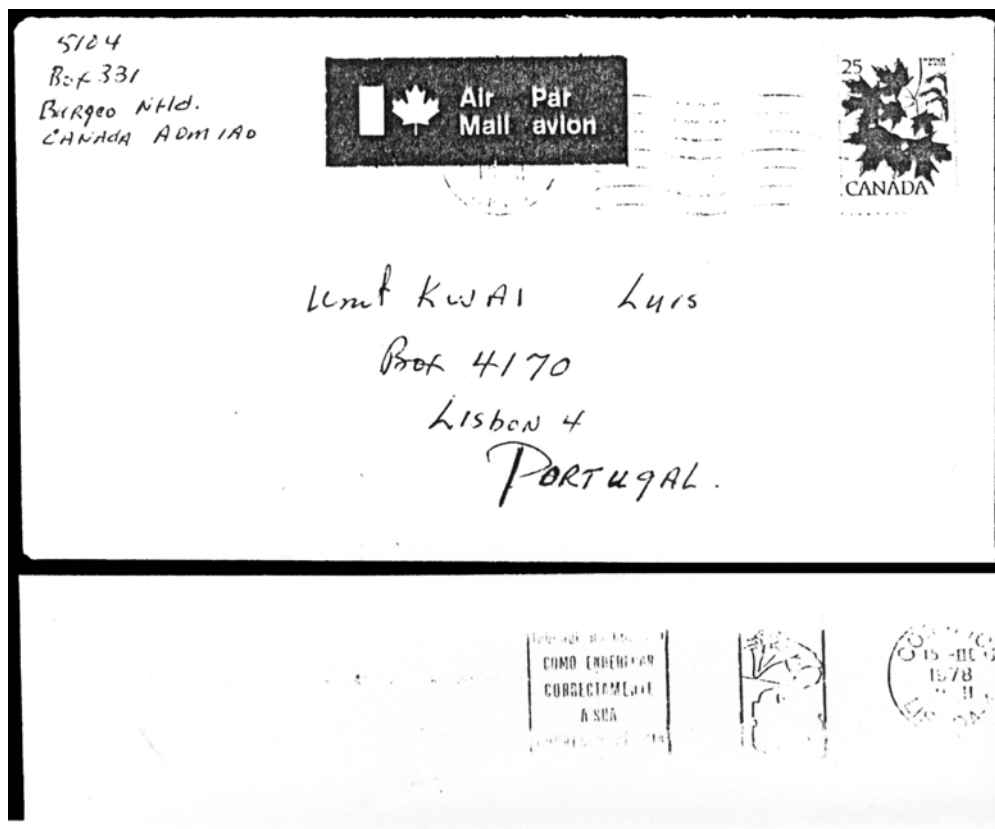 5104
Box 331
Burgeo Nfld.
CANADA A0M 1A0
Air Mail
Par avion
25
CANADA
KWAI Luis
Box 4170
Lisbon 4
PORTUGAL.
COMO ENDEREÇAR
CORRECTAMENTE
A SUA
15
1978